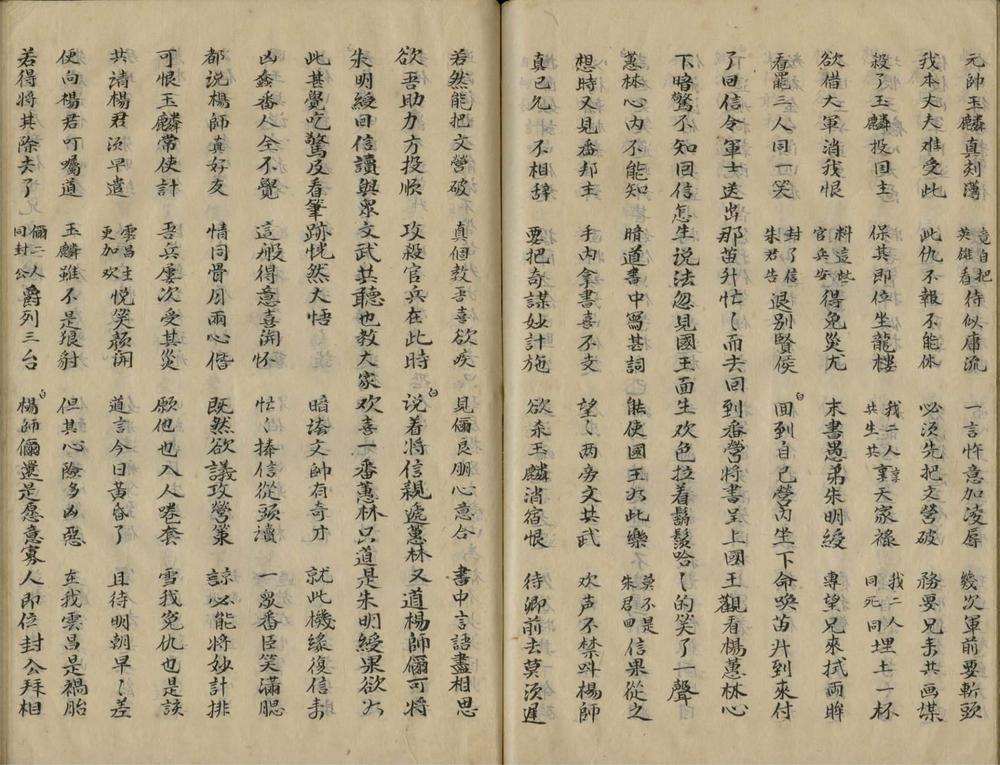 元帥玉麟真刻薄 竟自把英雄看待似庸流 一言忤意加凌辱 幾次軍前要斬頭
我本夫夫难受此 此仇不報不能休 必須先把文营破 務要兄来共画谋
殺了玉麟投国主 保其即位坐龍楼 我二人共生共享天家祿 我二人同死同埋土一杯
欲借大軍消我恨 料這些官兵安得免災尤 末書愚弟朱明綬 專望兄來拭両眸
看罷三人同一笑 封了信朱君告退别賢侯 回到自己营內坐下命唤苗升到來付
了回信令軍士送出那苗升忙〻而去回到番营將書呈上國王觀看楊蕙林心
下暗驚不知回信怎生说法忽見國王面生欢色拉着鬍鬚哈〻的笑了一聲
蕙林心內不能知 暗道書中寫甚詞 能使國王为此樂 莫不是朱君回信果從之
想時又見番邦主 手內拿書喜不支 望〻両旁文共武 欢声不禁叫楊師
真已久不相辞 要把奇謀妙計施 欲杀玉麟消宿恨 待卿前去莫須遲
若然能把文营破 真個教吾喜欲癡 見儞良朋心意合 書中言語盡相思
欲吾助力方投順 攻殺官兵在此時 说着將信親遞蕙林又道楊師儞可将
朱明綬回信讀與眾文武共聽也教大家欢喜一番蕙林只道是朱明綬果欲为
此甚覺吃驚及看筆跡恍然大悟 暗誇文帥有奇才 就此機緣復信来
凶蠢番人全不覺 這般得意喜開怀 忙〻捧信從頭讀 一眾番臣笑滿腮
都说楊師真好友 情同骨肉両心偕 既然欲議攻营策 諒必能將妙計排
可恨玉麟常使計 吾兵屢次受其災 願他也入人圈套 雪我冤仇也是該
共請楊君須早遣 雲昌主更加欢悦笑顏開 道言今日黃昏了 且待明朝早〻差
便向楊君叮囑道 玉麟雖不是狼豺 但其心險多凶惡 在我雲昌是禍胎
若得将其除去了 儞二人同封公爵列三台 楊師儞還是愿意寡人即位封公拜相